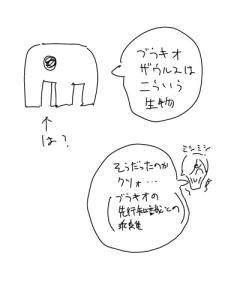 ブラキオ
ザウルスは
こういう
生物
↑
は?
ミシミシ
そうだったのか
クソォ…
(ブラキオの
先行知識との
乖離)